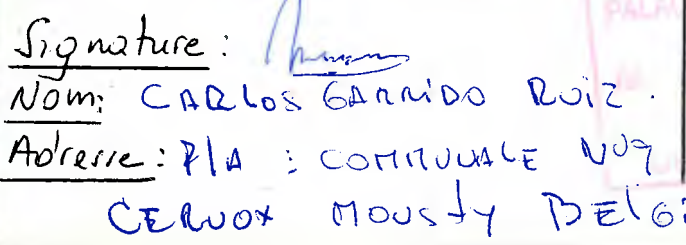 Signature :
Nom: CARLOS GARRIDO RUIZ.
Adresse : P/A : COMMUNALE Nº9
CEROUX MOUSTY BELG